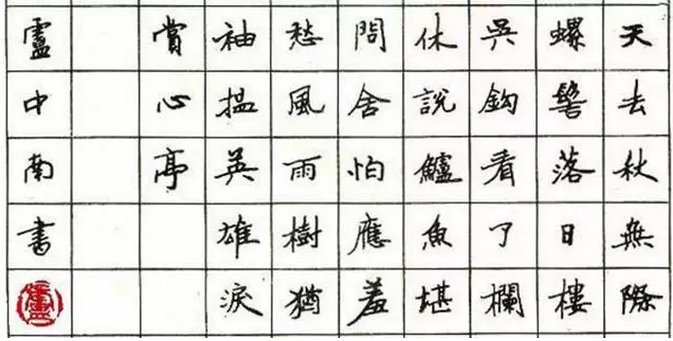 天去秋無際
螺髻落日樓
吳鈎看了欄
休說鱸魚堪
問舍怕應羞
愁風雨樹猶
袖揾英雄淚
賞心亭
盧中南書